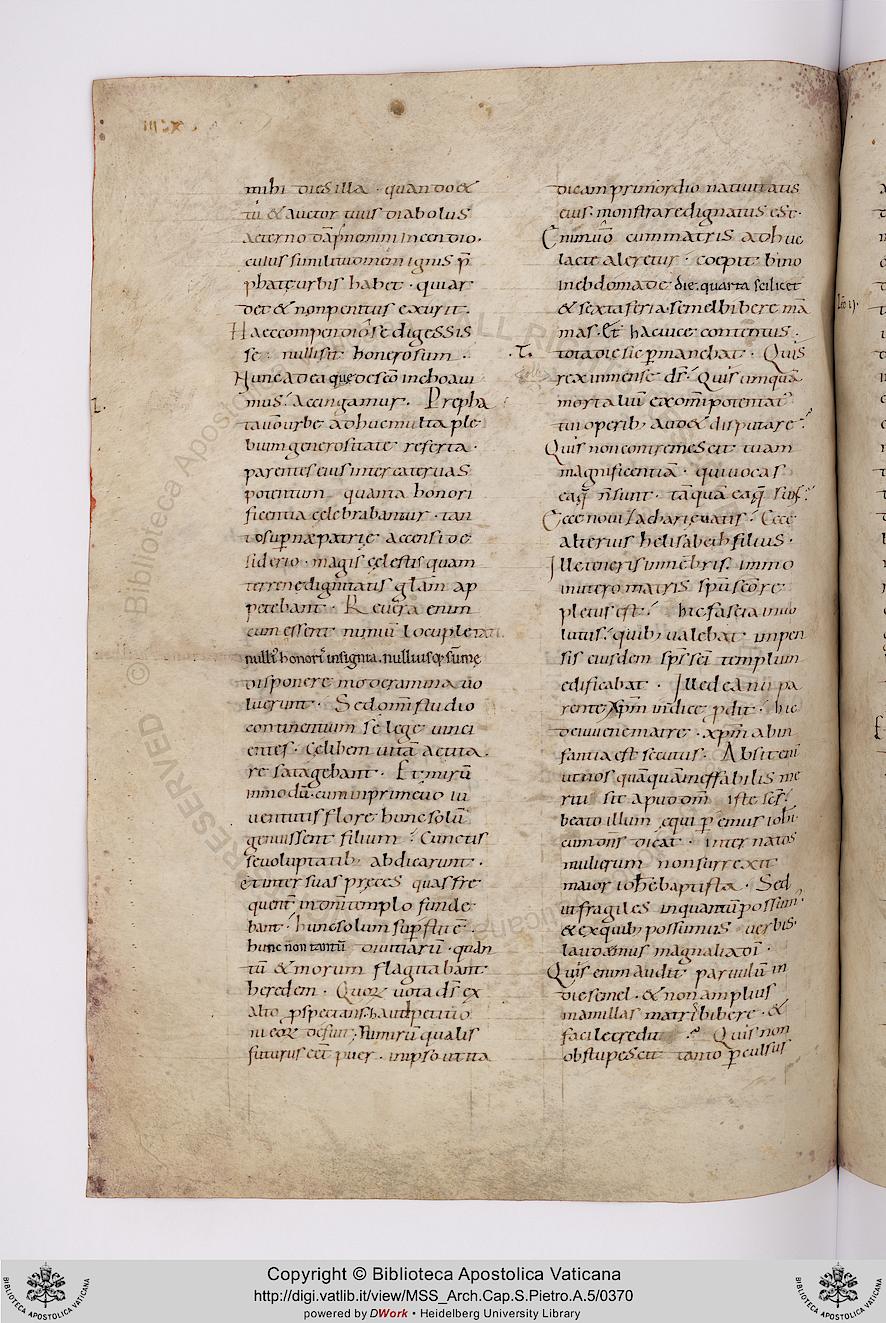 mihi dies illa · quando &
tu & auctor tuus diabolus
aeterno dāpnemini incendio·
cuius similitudinem ignis
phate urbis habet · qui ar
det & non penitus exurit.
Haec compendiose digessis
se · nulli sit honerosum ·
Hunc ad ea que de sc̄o inchoaui
mus accingamur. Prepha
I.
ta uo urbe adhuc multa ple
bium generositate referta·
parentes eius inter cateruas
potentum quanta honori
ficentia celebrabantur · tan
to sup̄nae patrie accensi de
siderio · magis cęlestis quam
terrene dignitatis gl̄am ap
petebant · Reuera enim
cum essent nimiū locupletati
nulli honori insignita. nullius
disponere moderamina uo
luerunt · Sed om̄i studio
continentium se lege uinci
entes · cęlibem uitā actita
re satagebant · Et mirū
inmodū · cum in primeuo iu
uentutis flore hunc solū
genuissent filium Cunctis
se uoluptatib; abdicarunt ·
et inter suas pręces quas fre
quent̄ in dn̄i templo funde
bant · hunc solum
hunc non tantū diuitiarū · quan
tū & morum flagitabant
heredem · Quoꝝ uota dn̄s ex
alto pspectans · haut petitio
ni eoꝝ defuit · Nimirū qualis
futurus eēt puer · in ipso ut ita
dicam primordio natiuitatis
eius · monstrare dignatus est ·
Cū nimirū cum matris adhuc
lacte aleretur · coepit bino
in ebdomade die. quarta scilicet
& sexta feria · semel bibere mā
mas · Et hac uice contentus ·
· T.
tota die sic p̄manebat · Quis
rex inmense dn̄s Quis umquā
mortaliū ex om̄ipotentat
tui operib; audet disputare
Quis non contremescit tuam
magnificentiā · qui uocas
ea q̄ n̄ sunt · tāquā ea q̄ sint
Ecce noui Zacharię uatis Ecce
alterius helisabeth filius ·
Ille teneris inmēbris · immo
in utero matris sp̄u sc̄o re
pletus est hic fascia inuo
lutus quib; ualebat inpen
sis eiusdem sp̄s sc̄i templum
edificabat · Ille de anu pa
rente xp̄m iudice p̄dit hic
de iuuene matre · xp̄m ab in
fantia est secutus · Absit eni
ut nos quāquā ineffabilis me
riti sit apud dm̄ iste sc̄s
beato illum ęquiperemus iohi
cum dn̄s dicat · inter natos
mulierum non surrexit
maior ioh̄e baptista · Sed
ut fragiles in quantū possum
& ex quib; possumus uerbis
laudamus magnalia dī ·
Quis enim audit paruulū in
die semel · & non amplius
mamillas matris bibere · &
facile credit Quis non
obstupescit tanto p̄culsus
Copyright © Biblioteca Apostolica Vaticana
http://digi.vatlib.it/view/MSS_Arch.Cap.S.Pietro.A.5/0370
powered by DWork • Heidelberg University Library